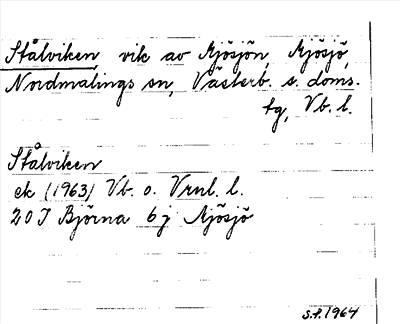 Stålviken vik av Mjösjön, Mjösjö,
Nordmalings sn, Västerb. s. doms.
tg, Vb. l.
Stålviken
ek (1963) Vb. o. Vrnl. l.
20 J Björna 6 j Mjösjö
S.F. 1964